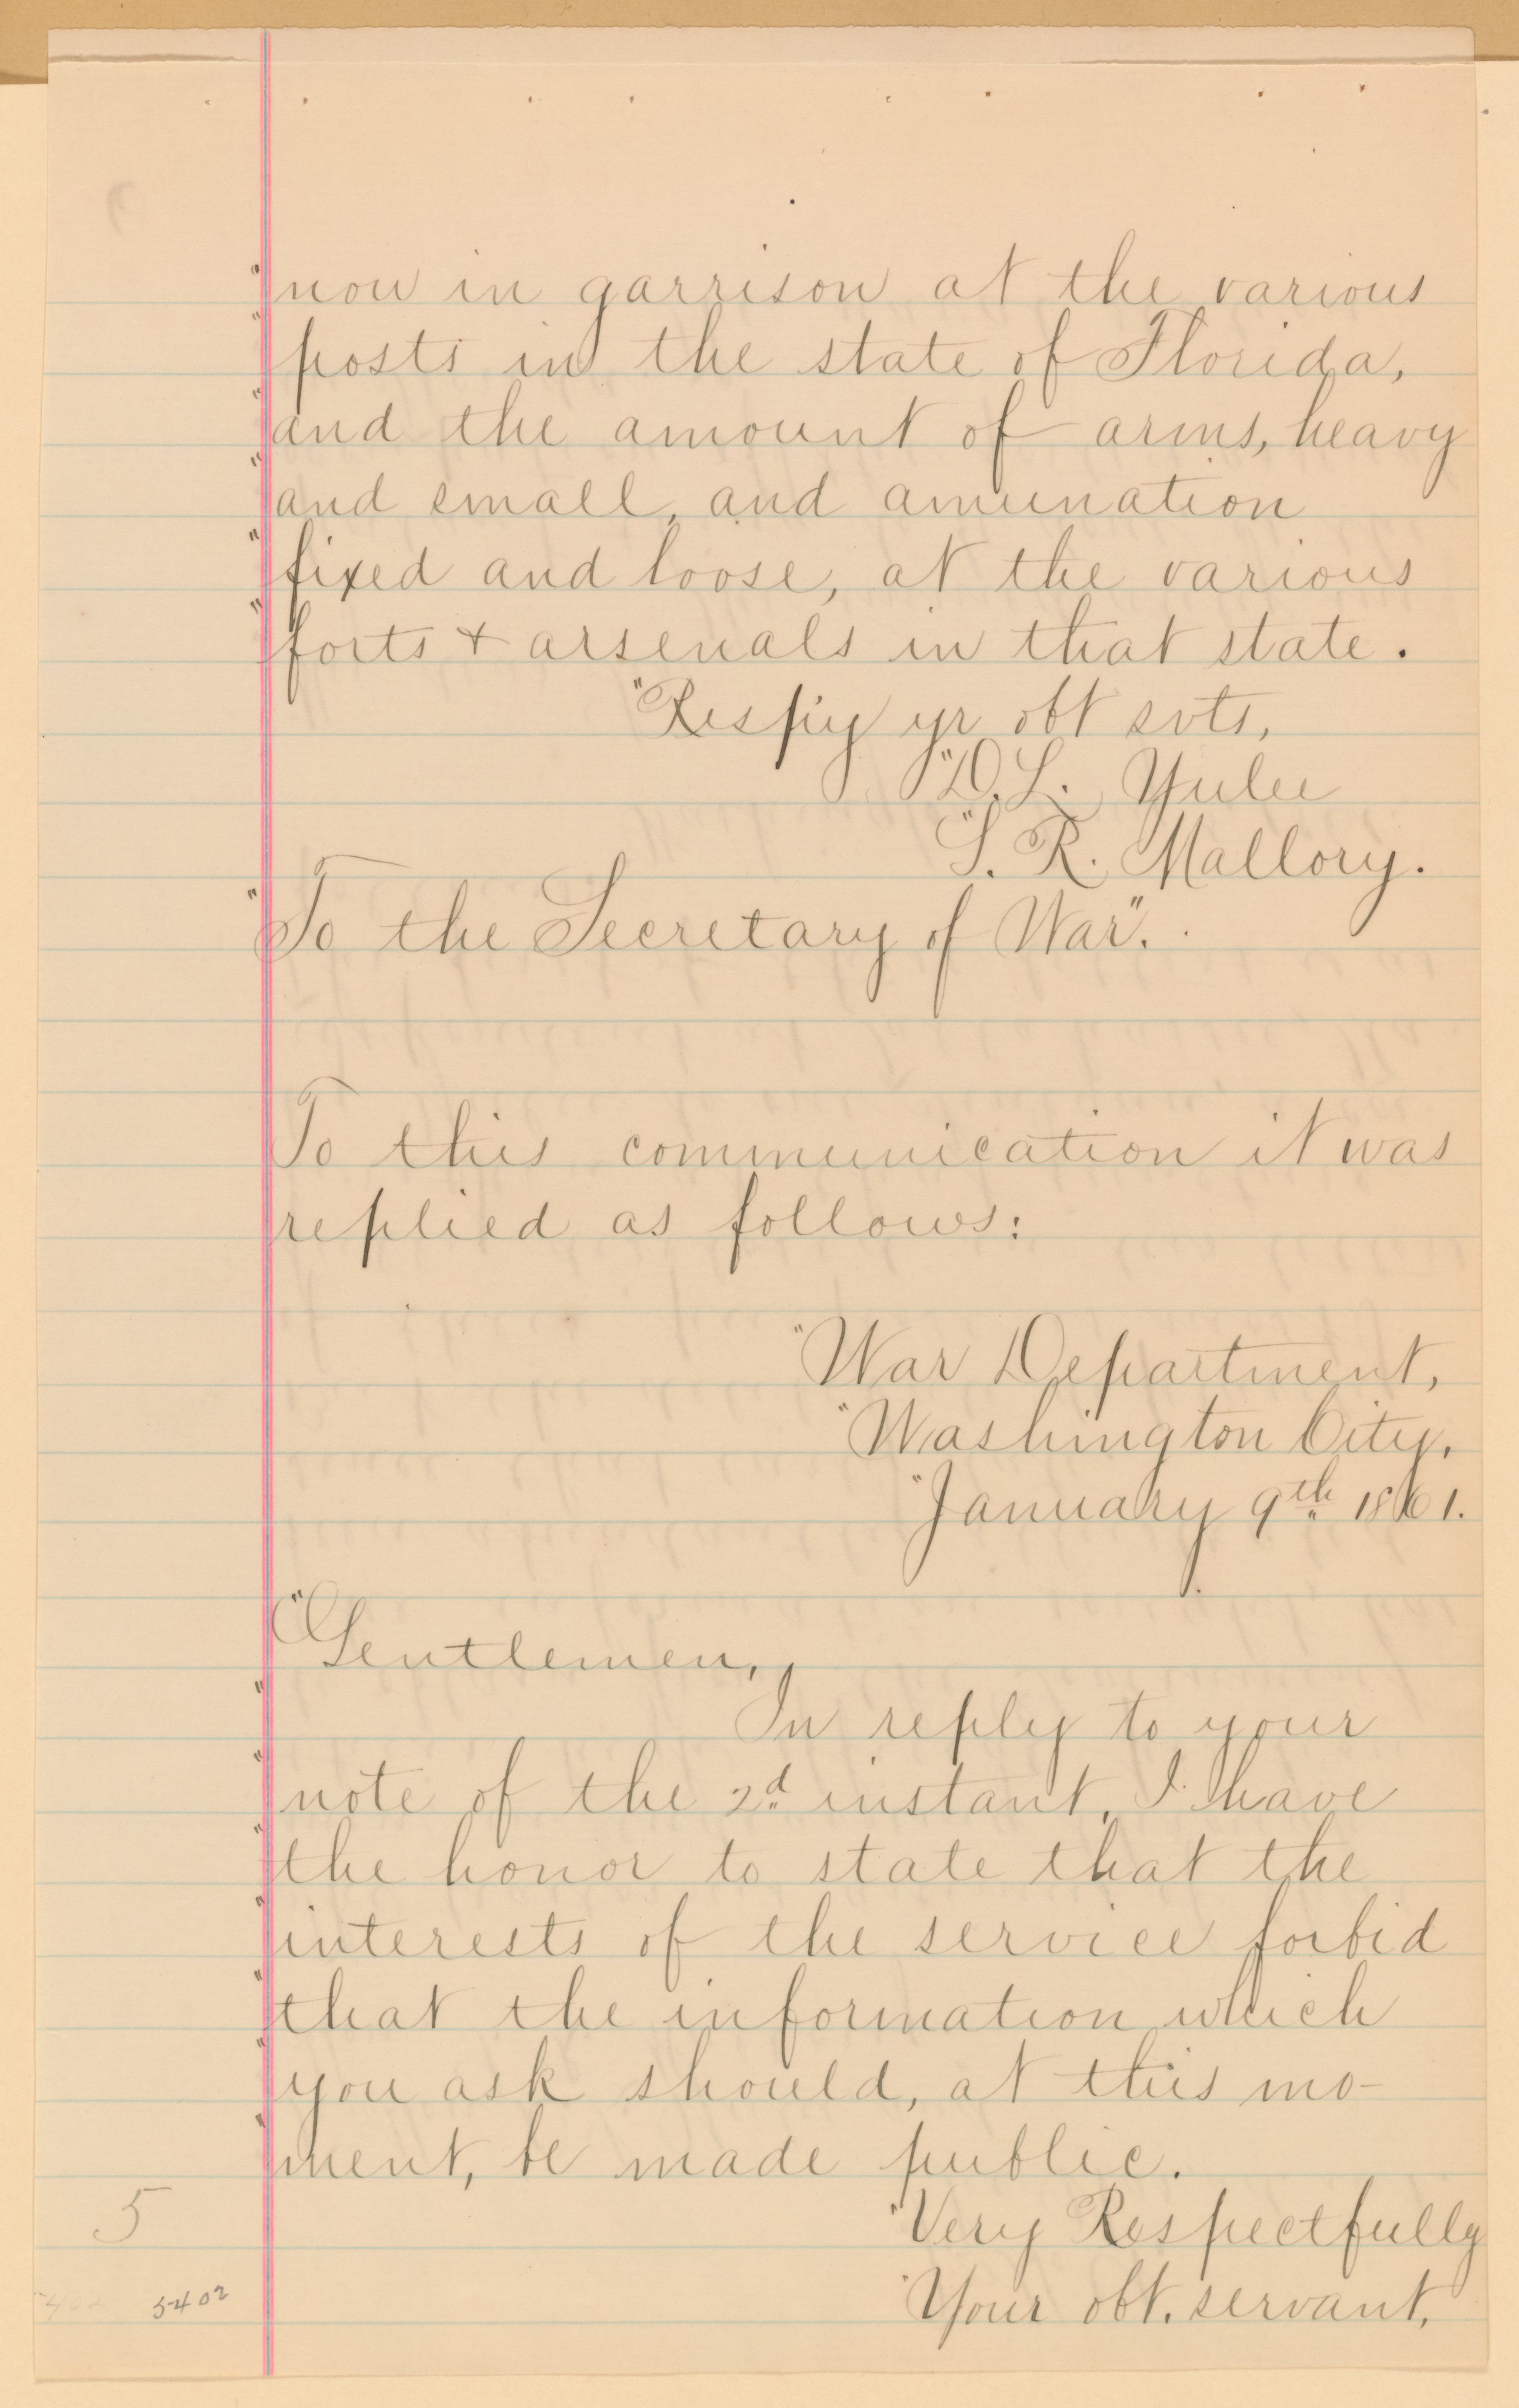 "now in garrison at the various
"posts in the state of Florida,
"and the amount of arms, heavy
"and small, and amunation
"fixed and loose, at the various
"forts + arsenals in that state.
"Respy yr obt svts,
"D. L. Yulee
"S. R. Mallory.
"To the Secretary of War".
To this communication it was
replied as follows:
"War Department,
"Washington City,
"January 9th 1861.
"Gentlemen,
"In reply to your
"note of the 2d instant, I have
"the honor to state that the
"interests of the service forbid
"that the information which
"you ask should, at this mo-
"ment, be made public.
"Very Respectfully
"Your obt. servant,
5
5402